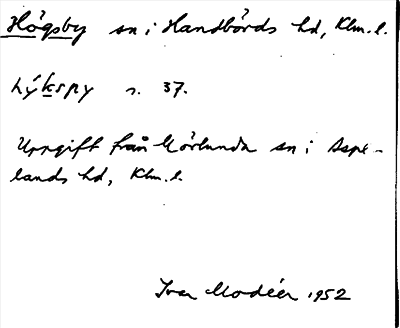 Högsby sn i Handbörds hd, Klm. l.
hýkspy s. 37.
Uppgift från Mörlunda sn i Aspe-
lands hd, Klm. l.
Ivar Modéer 1952